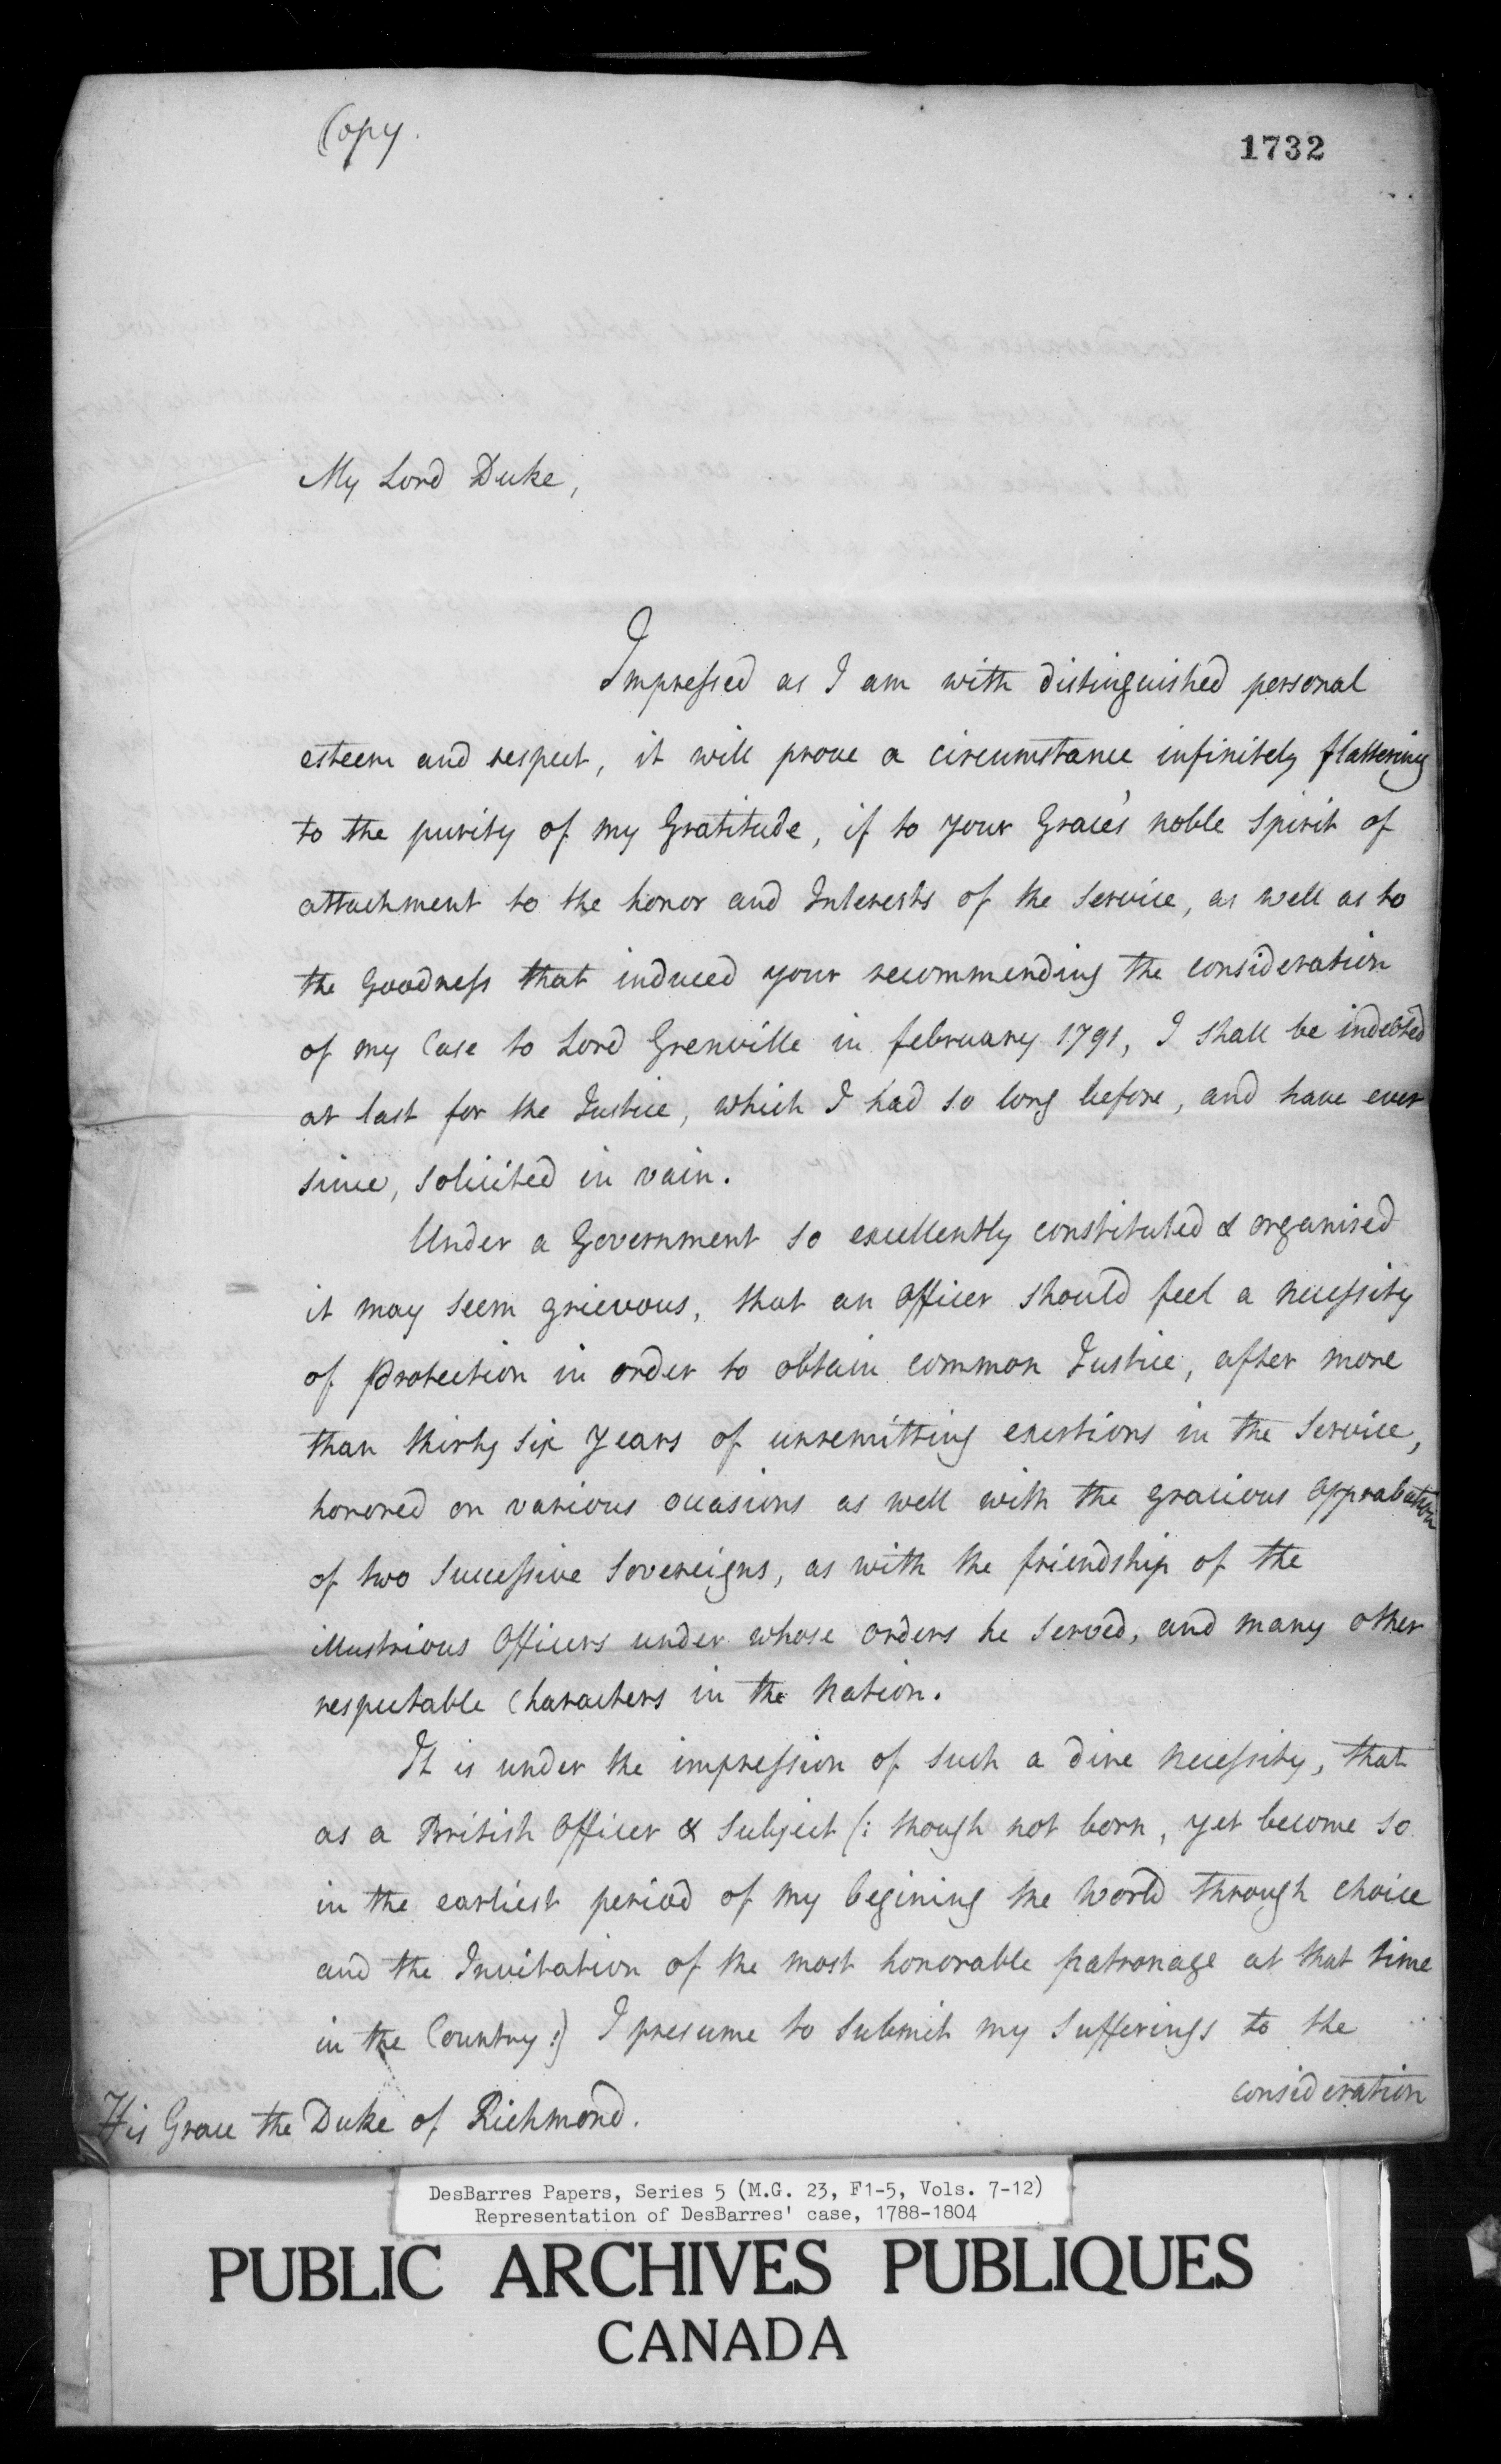 Copy.
1732
My Lord Duke,
Impressed as I am with distinguished personal
esteem and respect, it will prove a circumstance infinitely flattering
to the purity of my Gratitude, if to your Grace's noble Spirit of
attachment to the honor and Interests of the Service, as well as to
the Goodness that induced your recommending the consideration
of my Case to Lord Grenville in february 1791, I shall be indebted
at last for the Justice, which I had so long before, and have ever
since, solicited in vain.
Under a Government so excellently constituted & organised
it may seem grievous, that an Officer should feel a necessity
of protection in order to obtain common Justice, after more
than thirty six years of unremitting exertions in the Service,
honored on various occasions as well with the gracious approbation
of two Successive Sovereigns, as with the friendship of the
illustrious Officers under whose orders he served, and many other
respectable Characters in the Nation.
It is under the impression of such a dire necessity, that
as a British Officer & Subject (: though not born, yet become so
in the earliest period of my begining the World through choice
and the Invitation of the most honorable patronage at that time
in the Country :) I presume to submit my sufferings to the
consideration
His Grace the Duke of Richmond.
DesBarres Papers, Series 5 (M.G. 23, F1-5, Vols. 7-12)
Representation of DesBarres' case, 1788-1804
PUBLIC ARCHIVES PUBLIQUES
CANADA